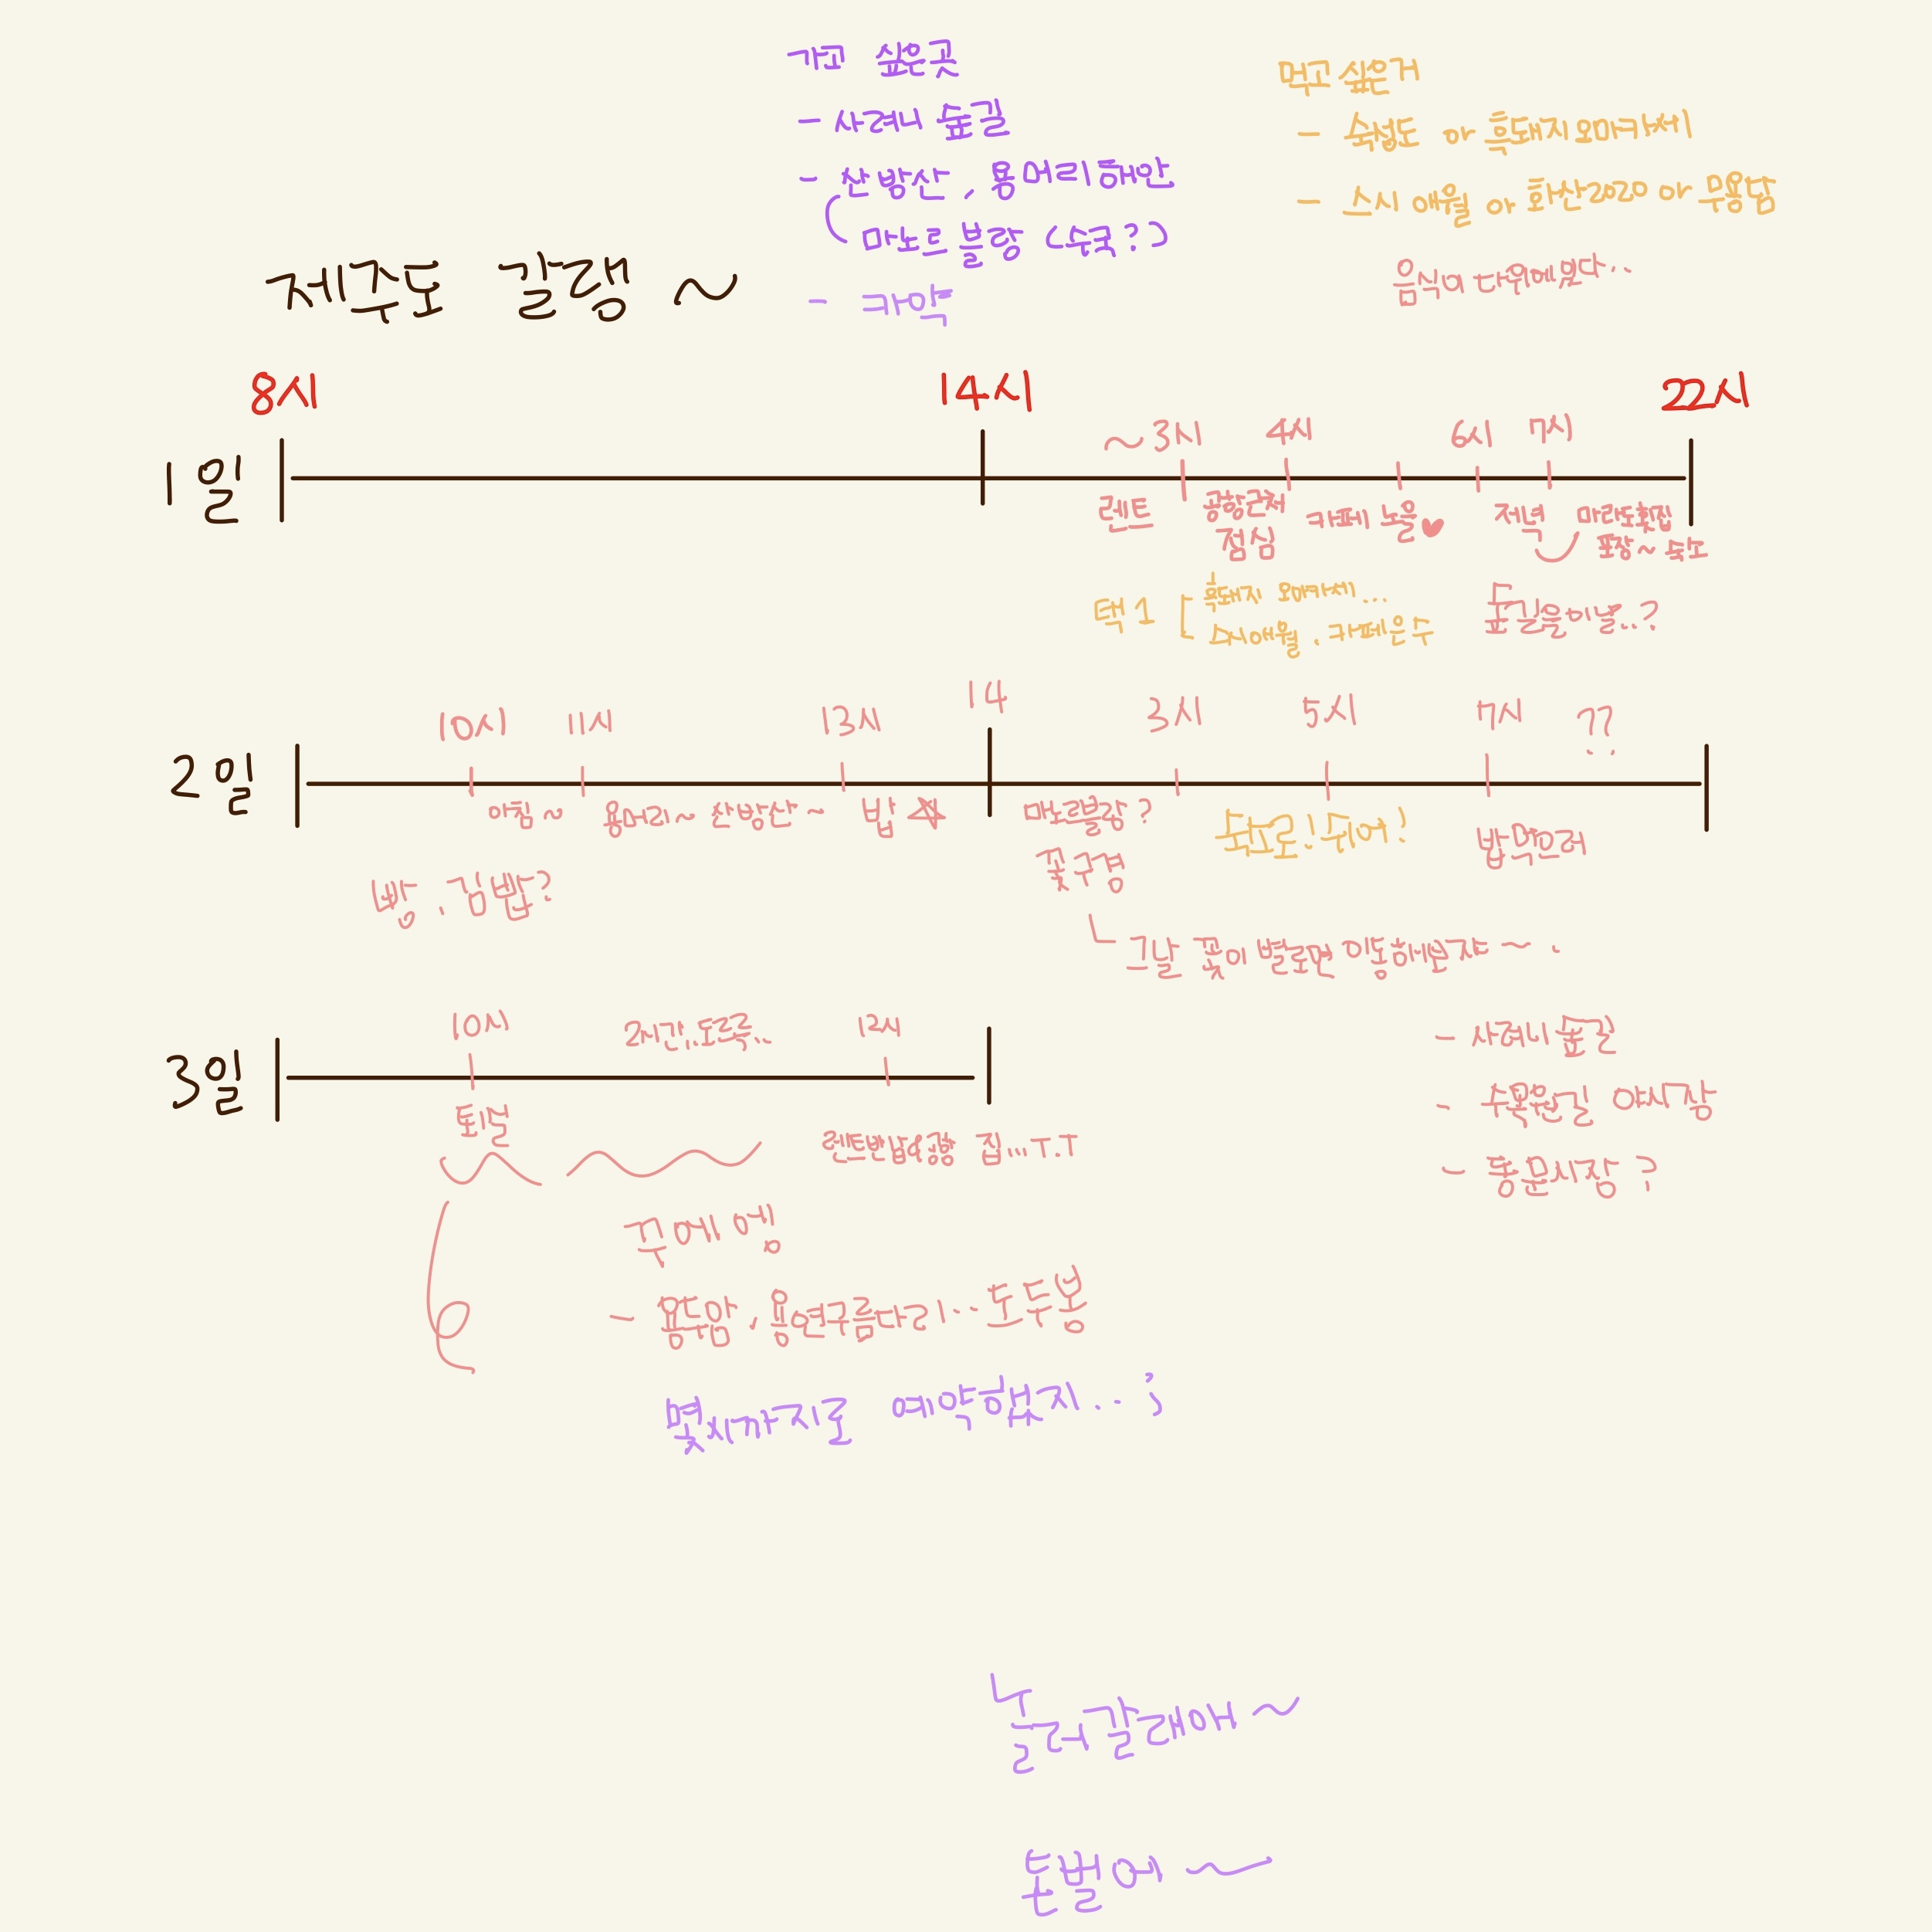 가고 싶은곳
- 사려니 숲길
- 산방산, 용머리해안
마노르 블랑 (수국?)
- 카약
먹고 싶은거
- 숙성도 or 흑돼지 오마카세
- 스시 애월 or 화산2020 or 무용담
음식이 다위에있다..
제주도 갈램 ~
8시
14시
22시
1일
~3시
4시
6시
7시
렌트
공항근처
점심
카페 노을♥
저녁
마라도횟집
포장~ 숙소
택1
흑돼지 오마카세...
스시애월. 카페은우
숲길을이날..?
2일
10시
11시
13시
14
3시
5시
7시
??
아침~
용머리~ 산방산~
밥 ☆
마노르블랑?
꽃구경
숙소로! 쉬어!
밥먹으러
빵. 김밥?
그날 꽃이 별로면 이동해보자~.
3일
10시
2시간..도로록...
12시
퇴실
렌트반납&공항 집...T.T
꾸에엥
- 용두암, 용연구름다리... 도두봉
- 사려니 숲길
- 수목원길 야시장
- 동문시장?
몇시까지로 예약했지...;
놀러갈래애~
돈벌어~